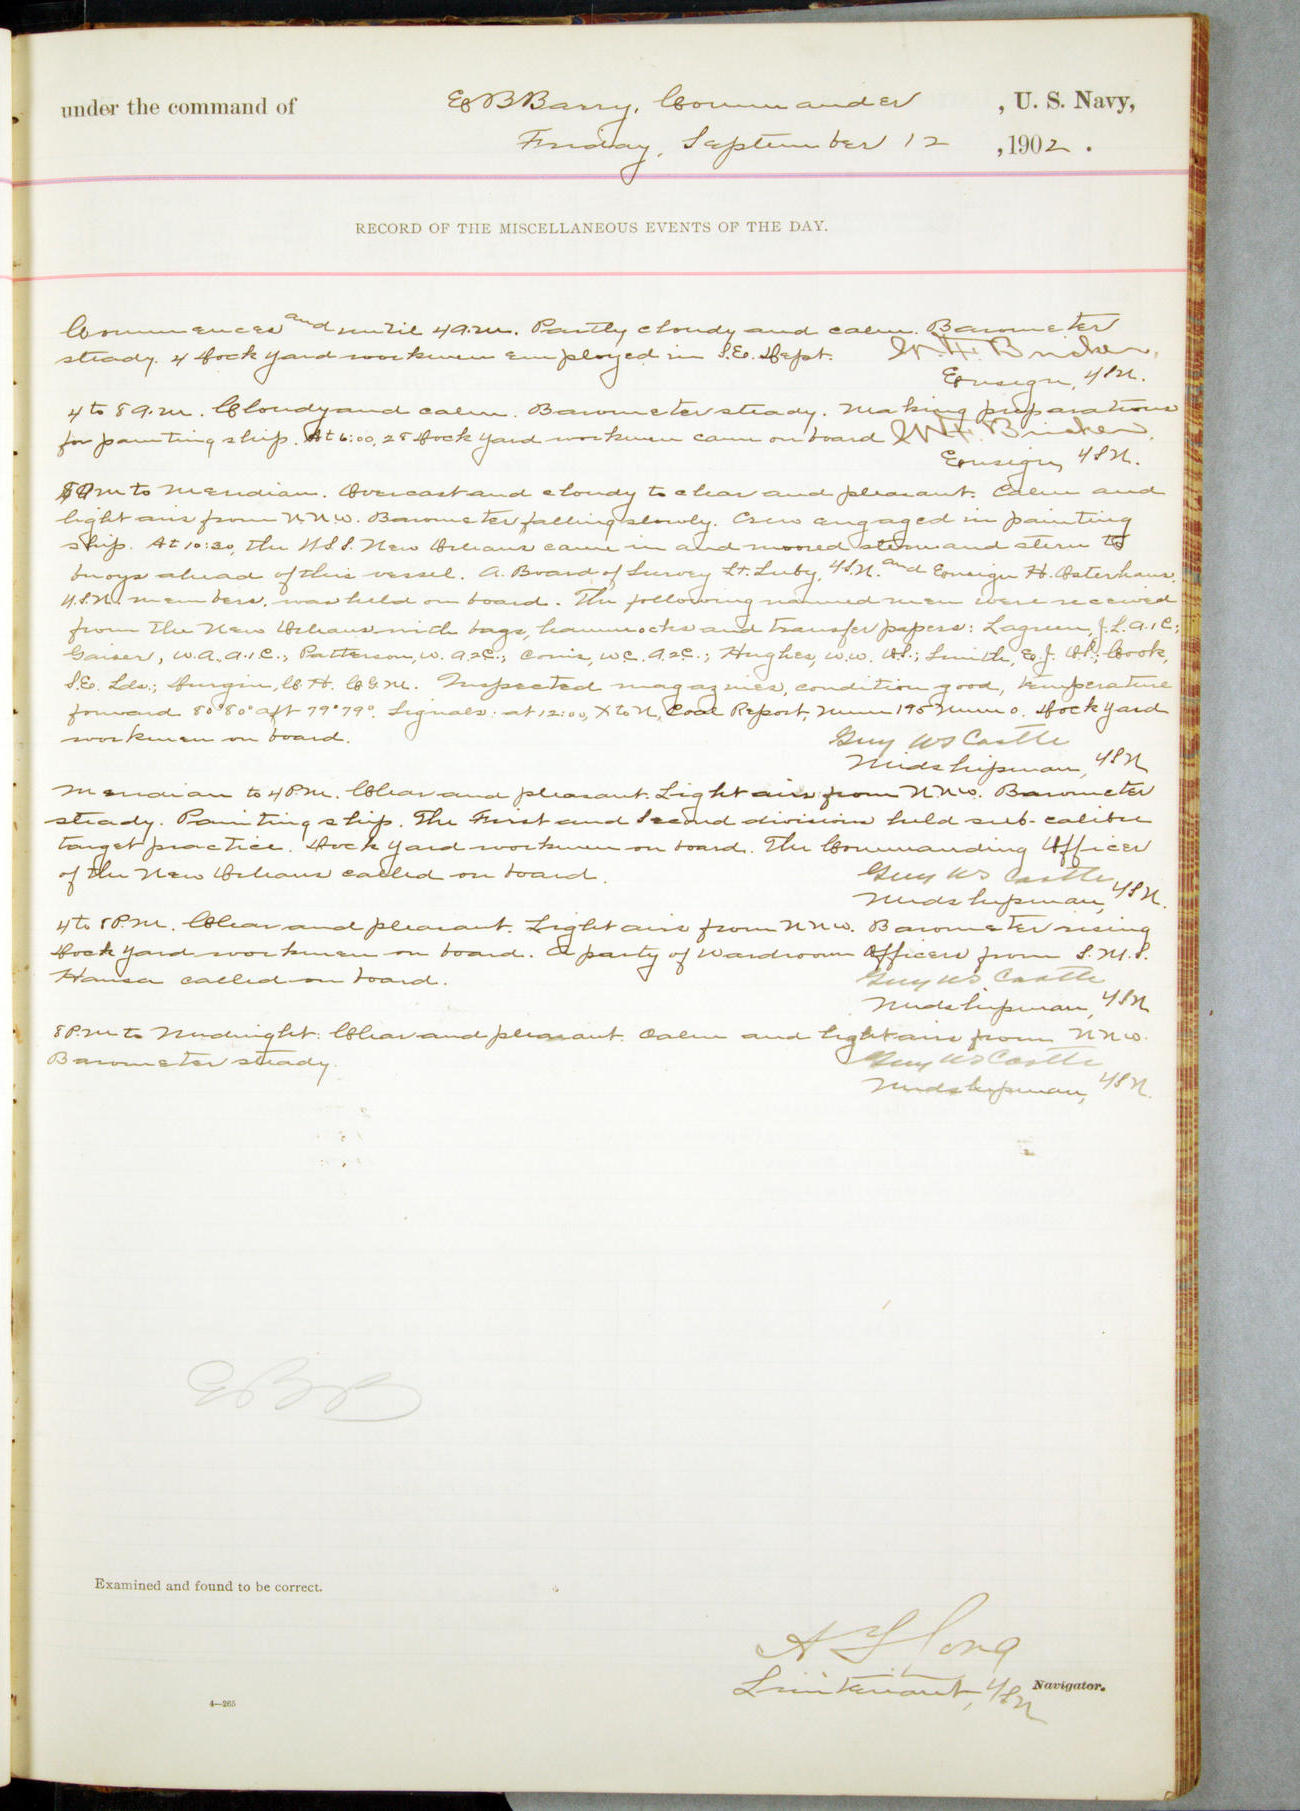 under the command of E B Barry, Commander , U. S. Navy,
Friday, September 12 , 1902 .
RECORD OF THE MISCELLANEOUS EVENTS OF THE DAY.
Commences and until 4 a.m. Partly cloudy and calm. Barometer
steady. 4 dock yard workmen employed in S.E. Dept. W. H. Bricker,
Ensign, USN.
4 to 8 a.m. Cloudy and calm. Barometer steady. Making preparations
for painting ship. At 6:00, 28 dock yard workmen came on board W H. Bricker,
Ensign, USN.
8 am to Meridian. Overcast and cloudy to clear and pleasant. Calm and
light airs from N.N.W. Barometer falling slowly. Crew engaged in painting
ship. At 10:30, the U.S.S. New Orleans came in and moored stem and stern to
buoys ahead of this vessel. A. Board of Survey Lt. Luby, U.S.N. and Ensign H. Osterhaus,
U.S.N. members, was held on board. The following named men were received
from the New Orleans with bags, hammocks and transfer papers: Lagreen, J.L. a.1c;
Gaiser, W.A. a.1c.; Patterson, W. a.2c.; W.C. a.2c.; Hughes, W.W. O.S.; Smith, E.J. O.S.; Cook,
S.E. Lds.; Durgin, C.H. C.G.M. Inspected magazines, condition good, temperature
forward 80° 80° aft 79° 79°. Signals: at 12:00, X to N, Coal Report, Num 195 Num 0. Dock yard
workmen on board. Guy WS Castle
Midshipman, USN
Meridian to 4 P.M. Clear and pleasant. Light airs from NNW. Barometer
steady. Painting ship. The First and Second divisions held sub-calibre
target practice. Dock yard workmen on board. The Commanding Officer
of the New Orleans called on board. Guy WS Castle
Midshipman, USN.
4 to 8 P.M. Clear and pleasant. Light airs from NNW. Barometer rising
Dock yard workmen on board. A party of Wardroom Officers from S.M.S.
Hansa called on board. Guy WS Castle
Midshipman, USN
8 P.M. to Midnight: Clear and pleasant. Calm and light airs from NNW.
Barometer steady. Guy WS Castle
Midshipman, USN.
EBB
Examined and found to be correct.
A T Long
Lieutenant, USN Navigator.
4—265